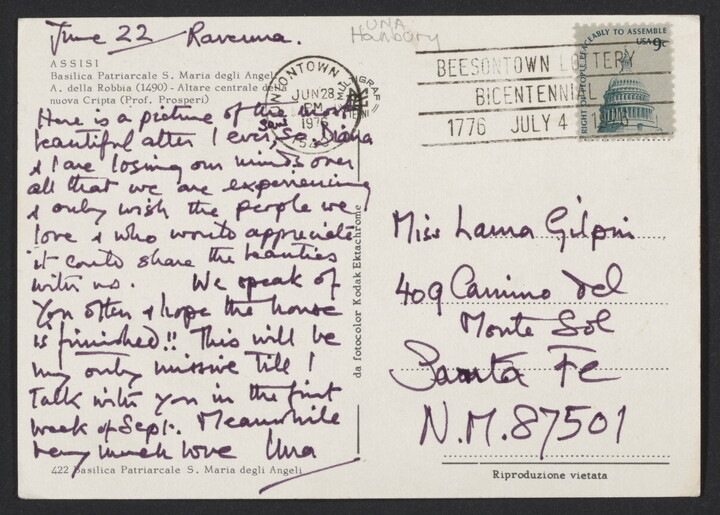 June 22 Ravenna.
UNA
Hanbury
ASSISI
Basilica Patriarcale S. Maria degli Angeli
A. della Robbia (1490) - Altare centrale de
nuova Cripta (Prof. Prosperi)
Here is a picture of the most
beautiful alter I ever saw. So, Diana
& I are losing our minds over
all that we are experiencing
& only wish the people we
love & who would appreciate
it could share the beauties
with us. We speak of
you often & hope the house
is finished!! This will be
my only missive till I
talk with you in the first
week of Sept. Meanwhile
very much love Una
422 Basilica Patriarcale S. Maria degli Angeli
da fotocolor Kodak Ektachrome
UNIONTOWN
JUN 28
PM
1976
BEESONTOWN LOTTERY
BICENTENNIAL
1776 JULY 4 1976
RIGHT OF PEOPLE PEACEABLY TO ASSEMBLE
USA 9c
Miss Laura Gilpin
409 Camino del
Monte Sol
Santa Fe
N.M. 87501
Riproduzione vietata